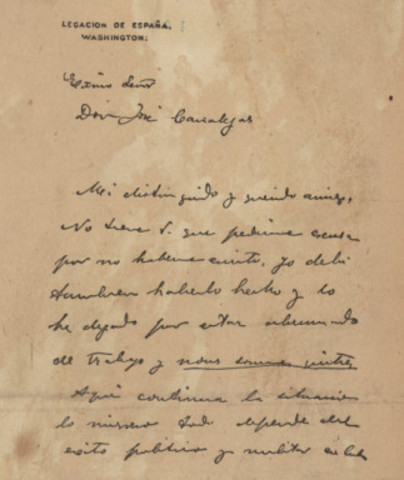 LEGACION DE ESPAÑA.
WASHINGTON.
Exmo Señor
Don José Canalejas
Mi distinguido y querido amigo,
No tiene V. que pedirme excusa
por no haberme escrito, yo debí
tambien haberlo hecho y lo
he dejado por estar abrumado
de trabajo y nous sommes quittes
Aquí continua la situacion
lo mismo todo depende del
exito politico y militar en Cuba